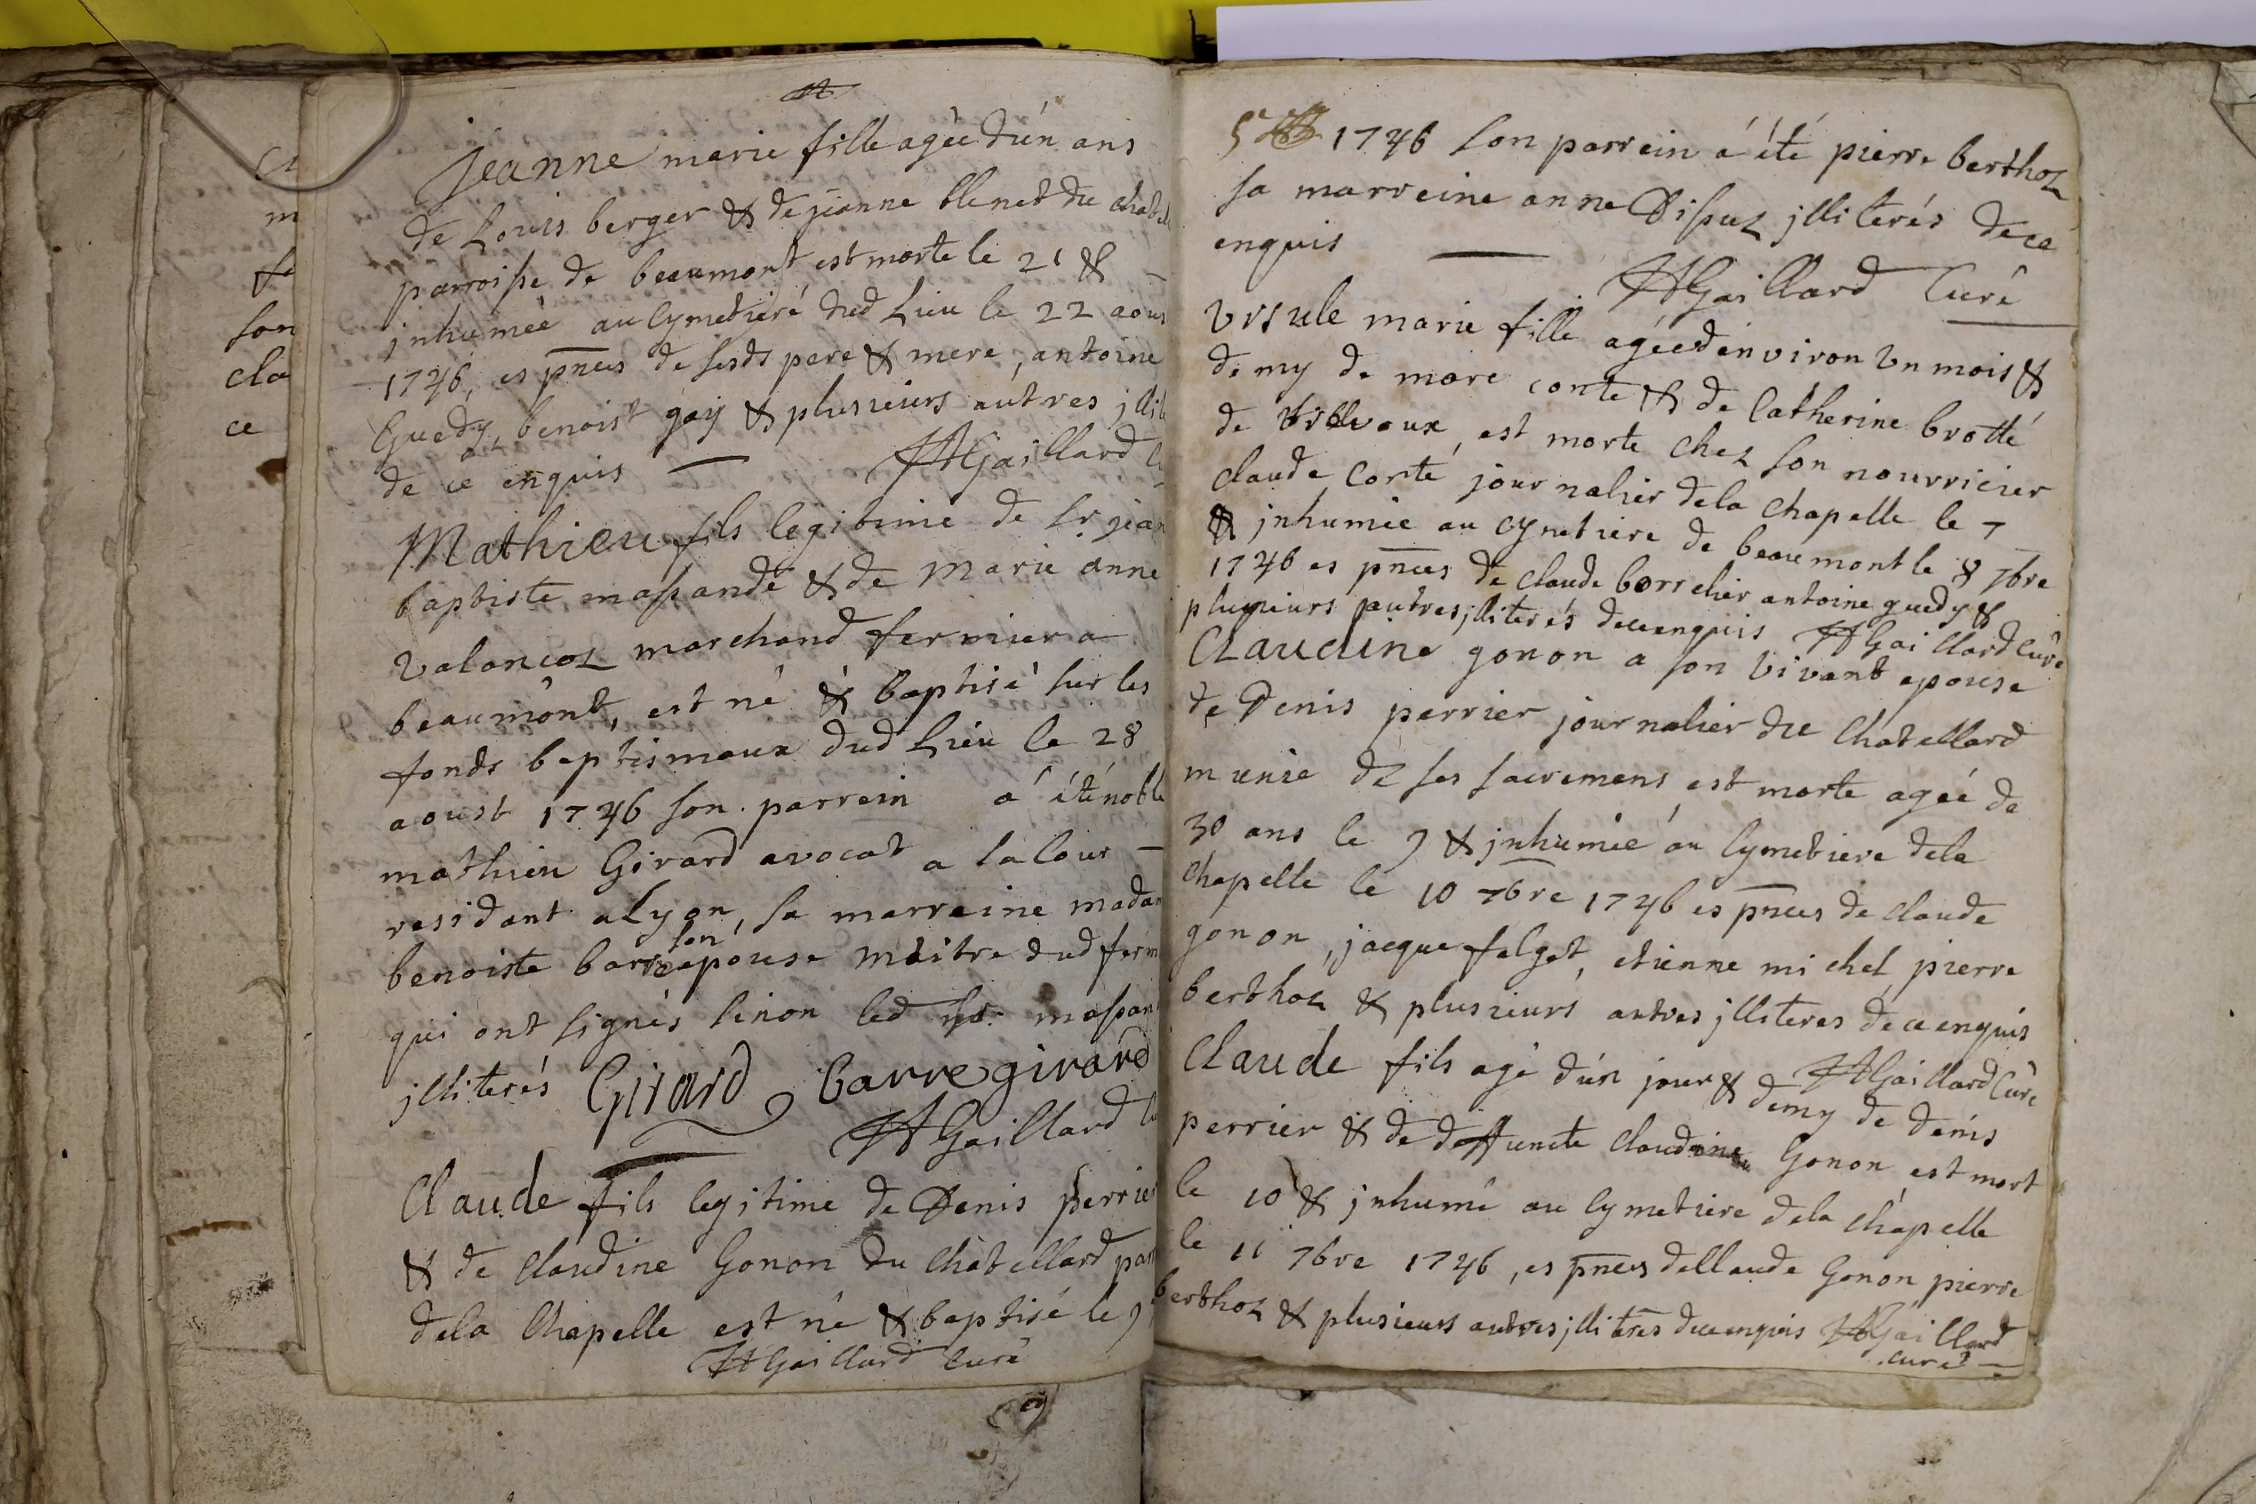 Jeanne marie fille agée d'un ans
de Louis berger & de jeanne blenet du chatel
parroisse de beaumont est morte le 21 &
jnhumée au Cymetieré dud Lieu le 22 aous
1746, es pnces de sesds pere & mere, antoine
Guedy, benoist gay & plusieurs autres jllit
de ce enquis — Gaillard
Mathieu fils legitime de Sr jean
baptiste massande & de Marie anne
Valancoz marchand fermier a
beaumont, est né & baptisé sur les
fonds baptismaux dud Lieu le 28
aoust 1746 son parrein a été noble
mathieu Girard avocat a la Cour —
residant a Lyon, sa marreine madam
son
benoiste barre épouse maitre dud ferm
qui ont signés sinon led sr massan
jlliterés Girard barregirard
Gaillard
Claude fils legitime de Denis perrier
& de Claudine Gonon du Chatellard par
dela Chapelle est né & baptisé le 9
Gaillard Curé
m
fe
son
cla
ce
1746 son parrein á été pierre berthoz
sa marreine anne Dispuz jlliterés de ce
enquis — Gaillard Curé
Ursule marie fille agée d'environ Un mois &
demy de marc conte & de Catherine brotté
de, est morte chez son nourricier
claude Conte journalier dela chapelle le 7
& jnhumée au cymetiere de beaumont le 8 7bre
1746 es pnces de claude borrelier antoine guedy &
plusieurs autres jlliterés de ce enquis Gaillard Curé
Claudine gonon a son vivant epouse
de Denis perrier journalier du Chatellard
munie de ses sacremens est morte agée de
30 ans le 9 & jnhumée au Cymetiere dela
Chapelle le 10 7bre 1746 es pnces de claude
gonon, jacque falget, etienne michel pierre
berthoz & plusieurs autres jlliteres de ce enquis
Gaillard Curé
Claude fils agé d'un jour & demy de denis
perrier & de deffuncte Claudine Gonon est mort
le 10 & jnhumé au Cymetiere dela chapelle
le 11 7bre 1746, es pnces de Claude Gonon pierre
berthoz & plusieurs autres jlliterés de ce enquis Gaillard
curé —